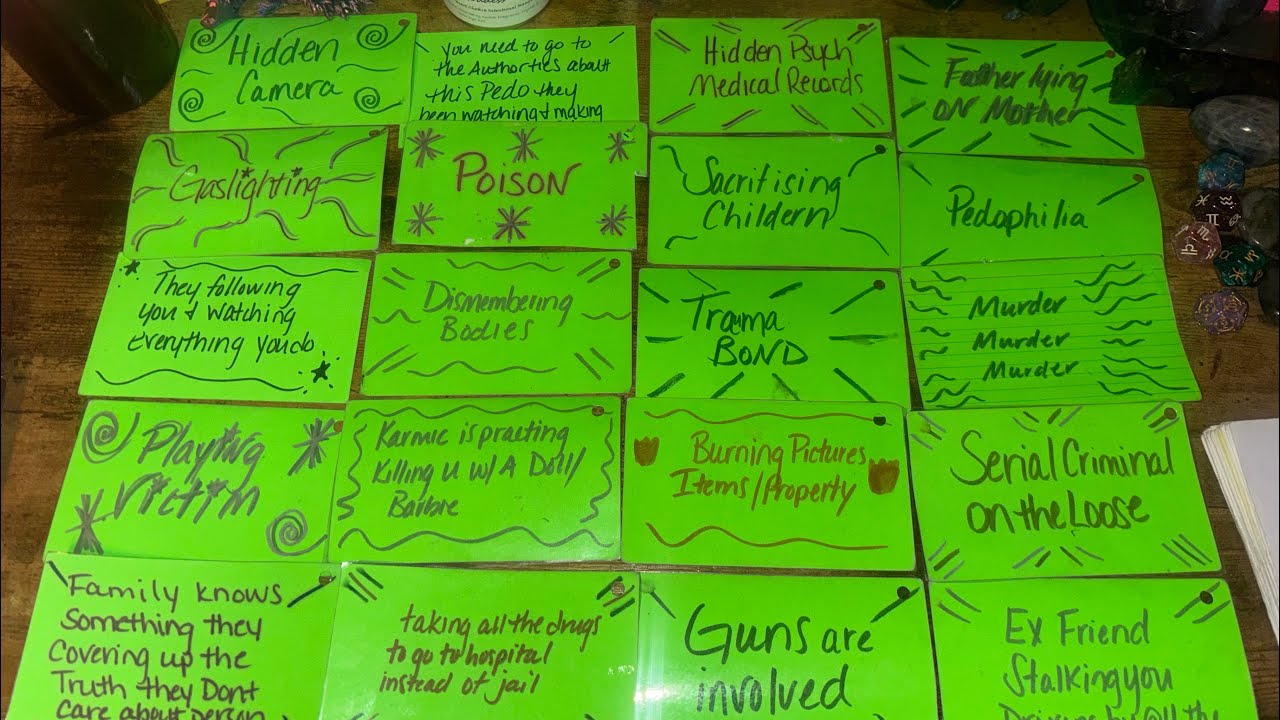 Hidden
Camera
You need to go to
the Authorties about
this Pedo they
been watching + making
Hidden Psych
Medical Records
Father lying
ON Mother
Gaslighting
POISON
Sacrifising
Childern
Pedophilia
They following
you + watching
Everything you do
Dismembering
Bodies
Trama
BOND
Murder
Murder
Murder
Playing
Victim
Karmic is practing
Killing U w/ A Doll/
Barbie
Burning Pictures
Items/Property
Serial Criminal
on the Loose
Family knows
Something they
Covering up the
Truth they Dont
care about person
taking all the drugs
to go to hospital
instead of jail
Guns are
involved
Ex Friend
Stalking you
Driving by all the